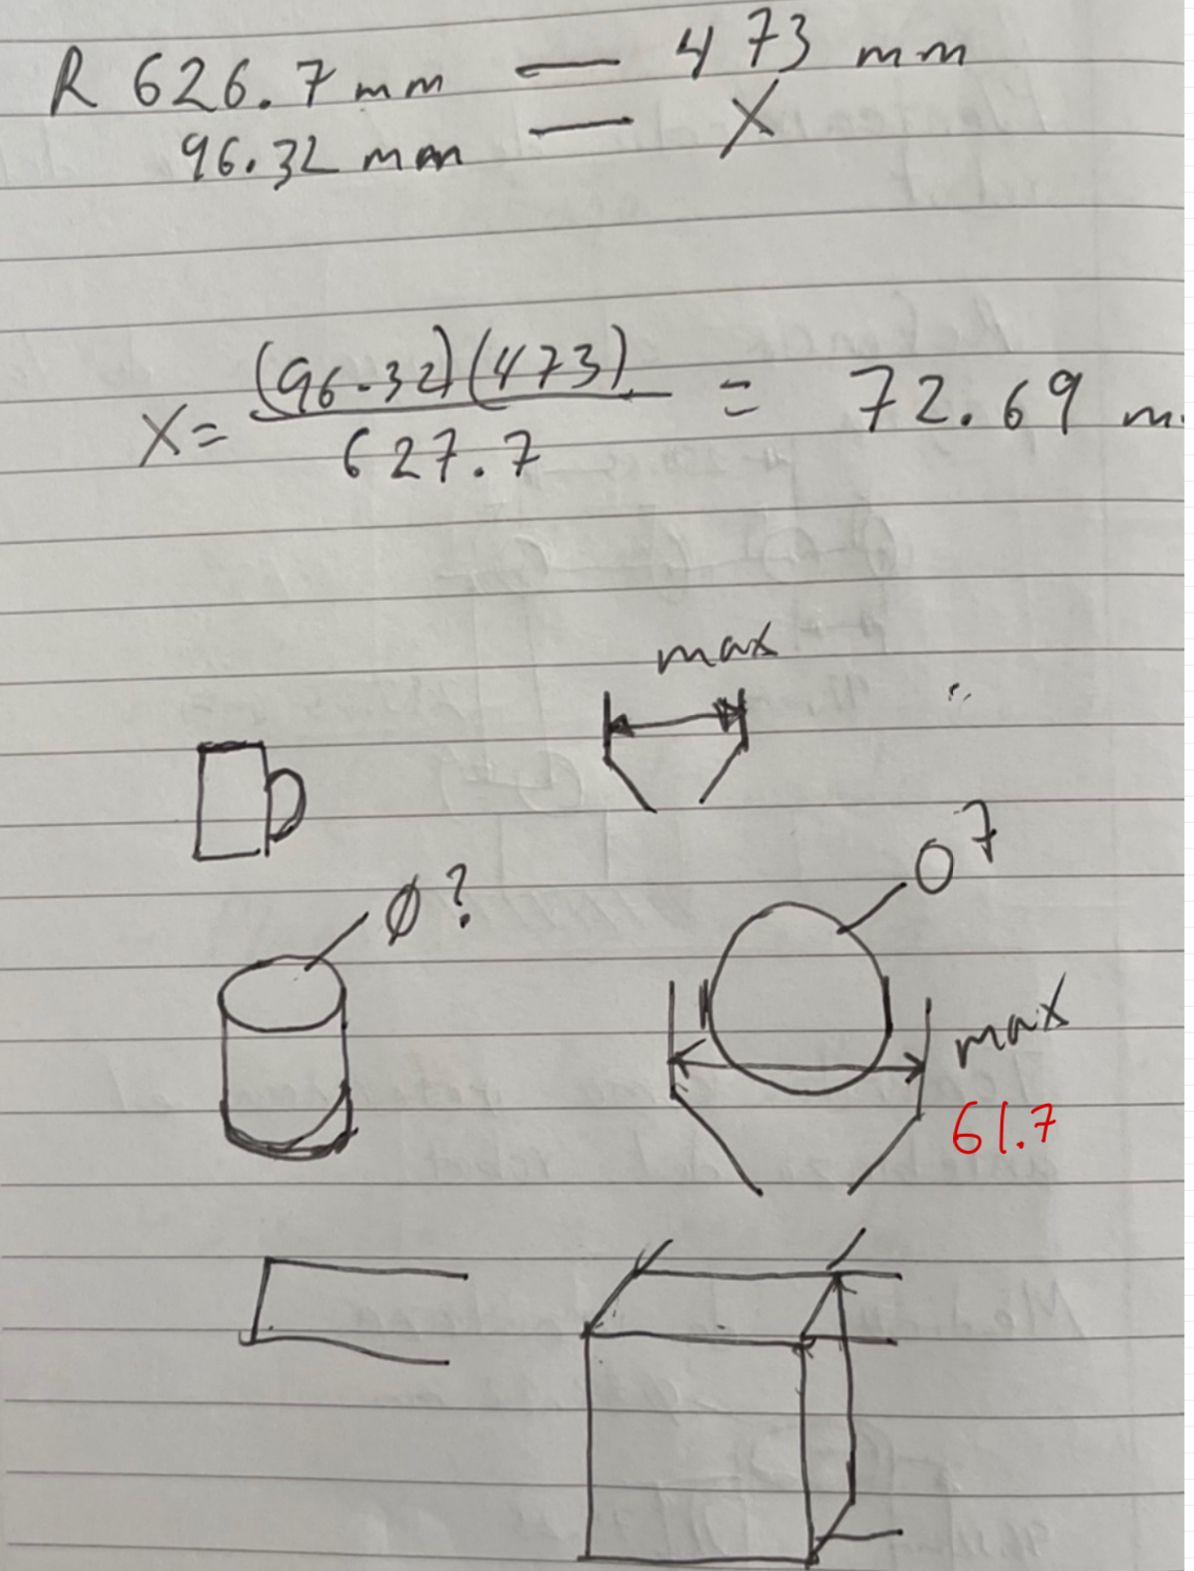 R 626.7 mm — 473 mm
96.32 mm — X
X = (96.32)(473) / 627.7 = 72.69 m
max
Ø?
O 7
max
61.7